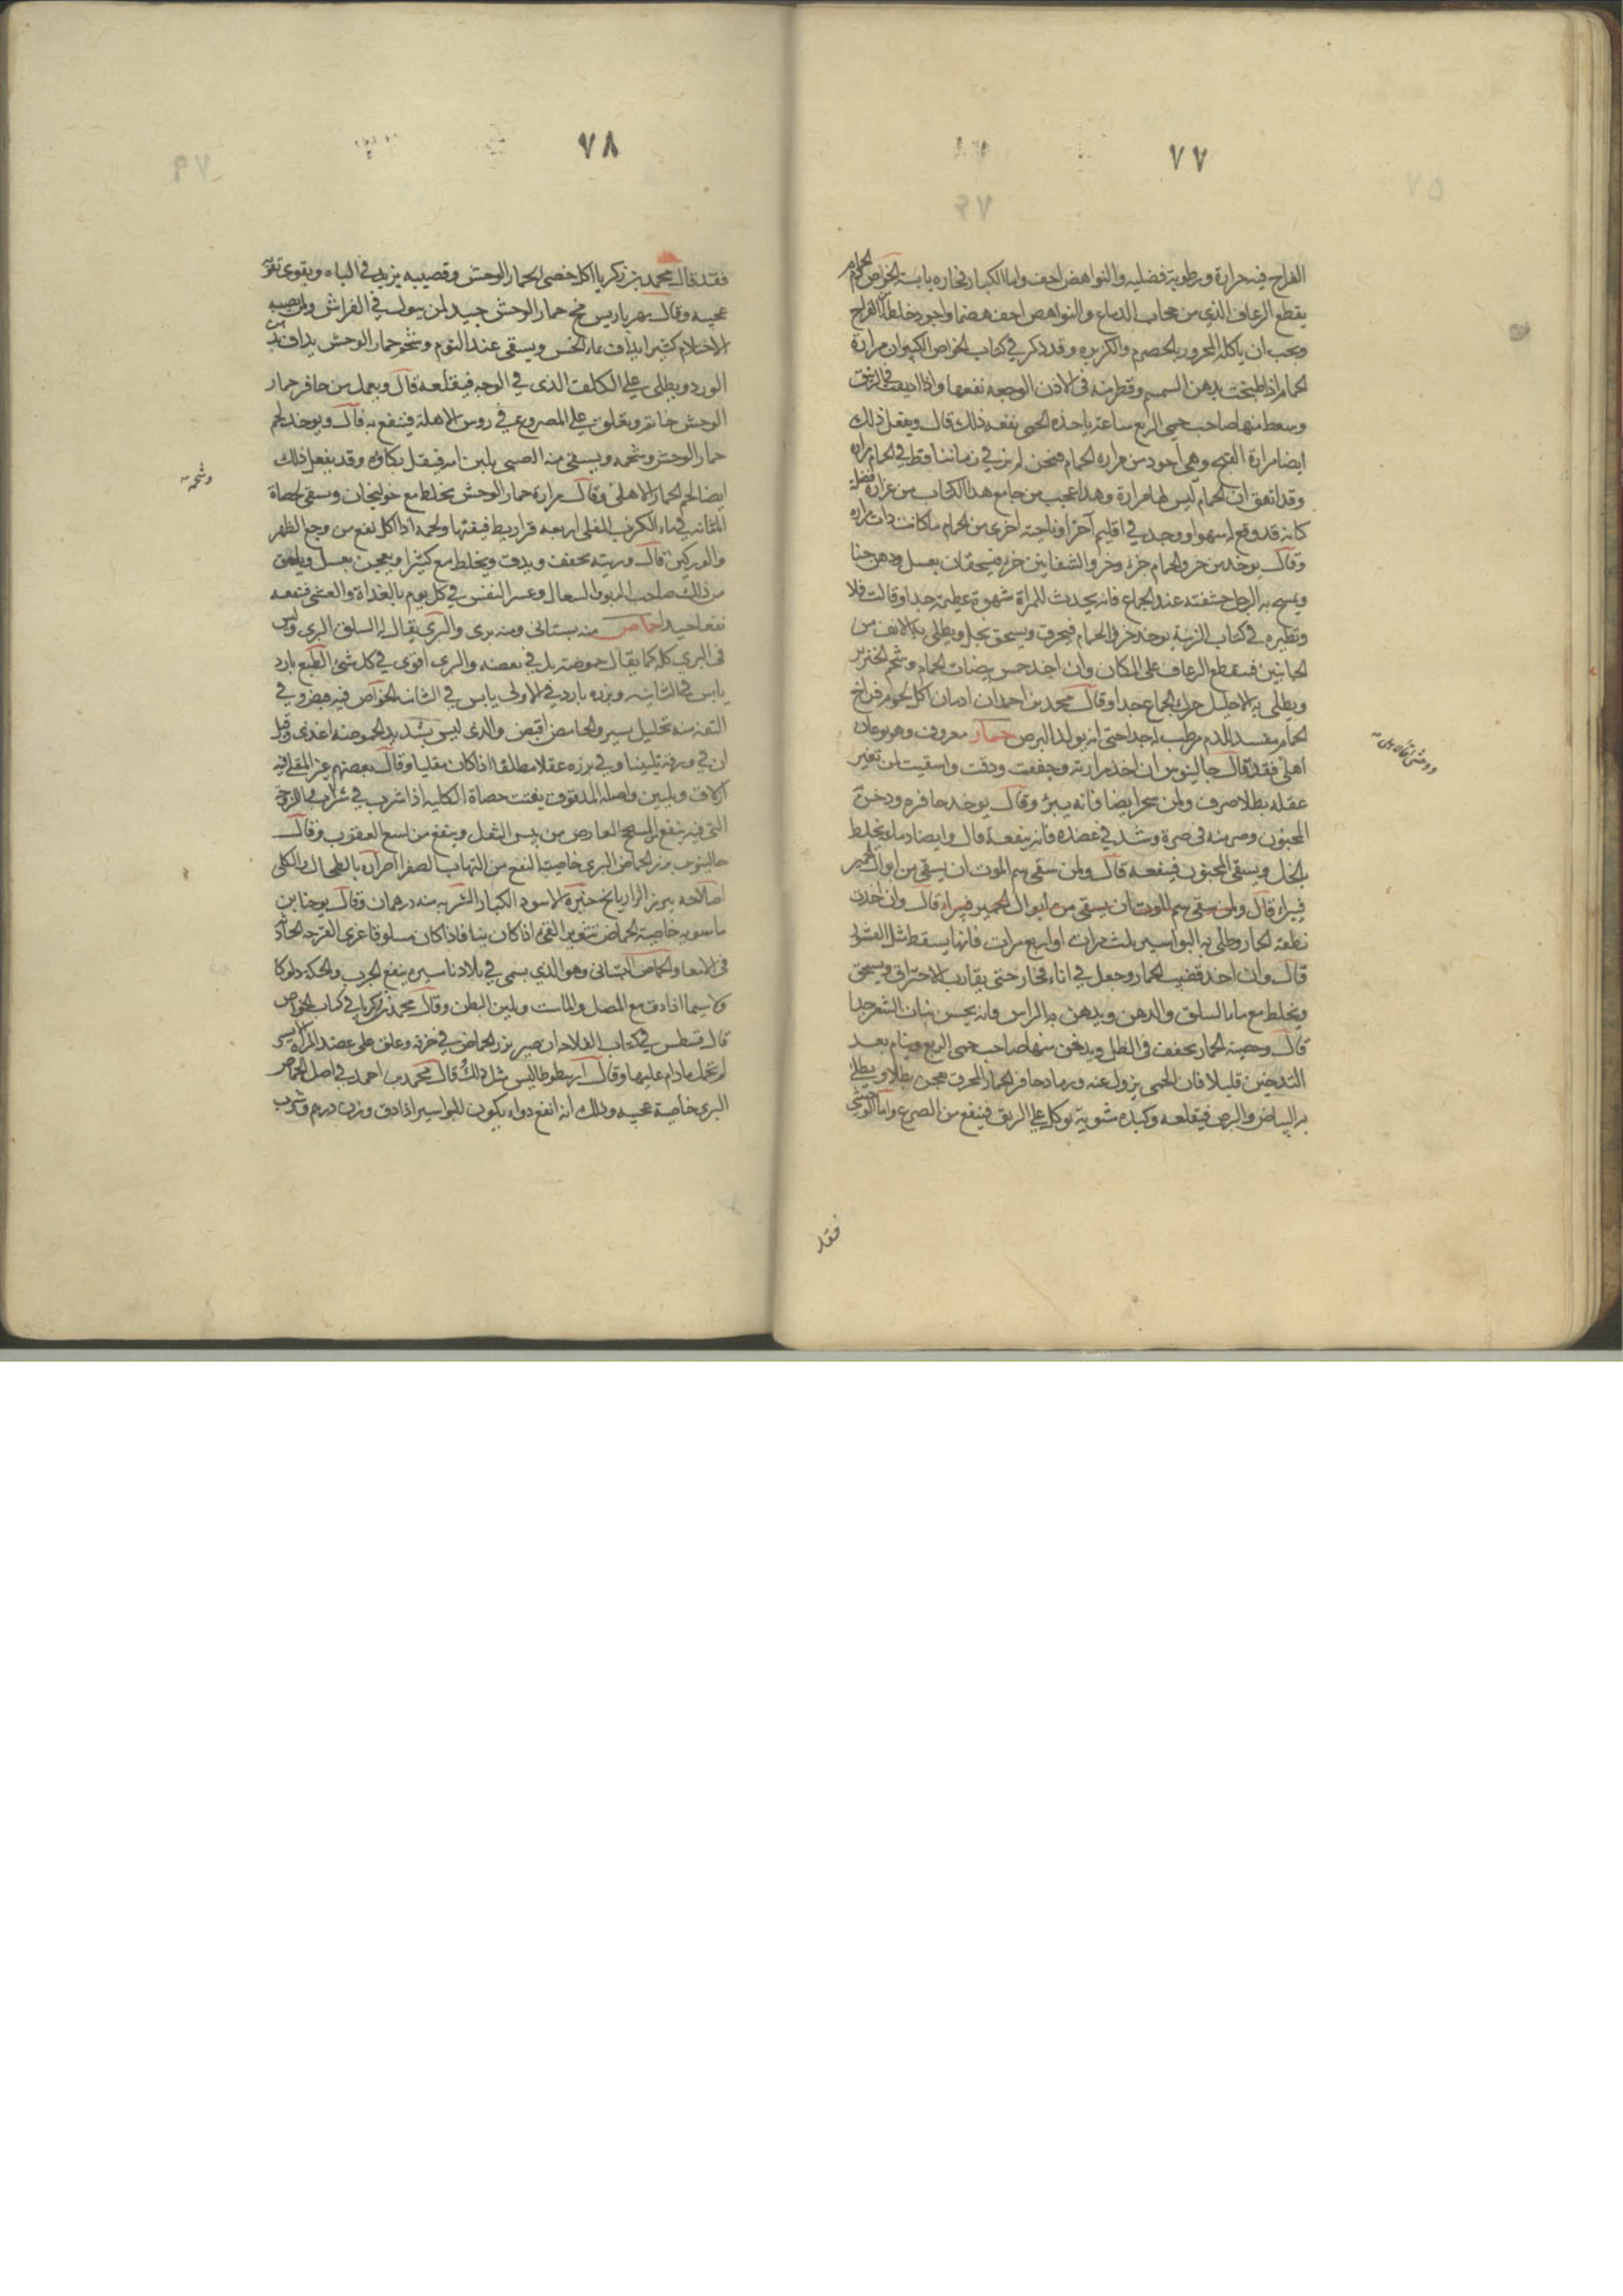 ٧٧
الفراخ فيه حرارة ورطوبة فضليه والنواهض اخف واما الكبار فحاره يابسة الخواص
يقطع الرعاف الذي من حجاب الدماغ والنواهض اخف هضما واجود خلطا الفراخ
ويجب ان ياكله المحرور بالحصرم والكزبره وقد ذكر في كتاب الخواص الكبير ان مرارة
الحمام اذا طبخت بدهن السمسم وقطر منه في الاذن الوجعه نفعها واذا اديفت
وسعط منها صاحب حمى الربع ساعة ياخذه الحمى نفعه ذلك قال ويفعل ذلك
ايضا مرارة القبج وهي اجود من مراره الحمام فنحن لم نر في زماننا قط في الحمام مراره
وقد اتفق ان الحمام ليس لها مرارة وهذا عجب من جامع هذا الكتاب من غزارة فضله
كانه قد وقع له سهو او وجد في اقليم آخر او ناحية اخرى من الحمام ما كانت ذات مراره
وقال يوخذ من خرو الحمام جزء وخرو الشفانين جزء فيسحقان بعسل ودهن
ويمسح به الرجل حشفته عند الجماع فانه يحدث للمرأة شهوة عظيمة جدا وقالت
في كتاب الزينة يوخذ خرو الحمام فيحرق ويسحق بخل ويطلى به الانف من
الجانبين فيقطع الرعاف على المكان وان اخذ خمس بيضات الحمام وشحم الخنزير
ويطلى به الاحليل حرك الجماع جدا وقال محمد بن احمد ان ادمان اكل لحوم فراخ
الحمام مفسد الدم مرطب له جدا حتى انه يولد البرص حمار معروف وهو نوعان
اهلى فقد قال جالينوس ان اخذ مرارته وجففت ودقت واسقيت لمن تغير
عقله بطلا صرف ولمن سحر ايضا فانه يبرؤ وقال يوخذ حافره ودخن
المجنون وصر منه في صرة وشد في عضده فانه ينفعه قال وايضا دماء يخلط
بالخل ويسقى المجنون فينفعه قال ولمن سقى سم الموت ان يسقى من ابوال الحمير
فيبراء قال ولمن سقى سم الموت ان يسقى من ابوال الحمير فيبراء قال وان اخذت
نطفة الحمار وطلى به البواسير ثلث مرات او اربع مرات فانها يسقط مثل القشور
قال وان اخذ قضيب الحمار وجعل في اناء فخار حتى يقارب الاحتراق ويسحق
ويخلط مع ماء السلق والدهن ويدهن به الراس فانه يحسن نبات الشعر جدا
قال وخصية الحمار تجفف في الظل ويدخن منها صاحب حمى الربع وينام بعد
التدخين قليلا فان الحمى يزول عنه ورماد حافر الحمار المحرق معجن بطلا ويطلى
به البياض والبرص فيقلعه وكبده مشوية توكل على الريق فينفع من الصرع واما الوحشى
فقد
٧٨
فقد قال محمد بن زكريا اكل خصى الحمار الوحش وقضيبه يزيد في الباه ويقوى
عجيبه وقال مخ حمار الوحش جيد لمن يبول في الفراش ولمن يصيبه
الاحتلام كثيرا يداف بماء الخس ويسقى عند النوم وشحم حمار الوحش يداف
الورد ويطلى على الكلف الذى في الوجه فيقلعه قال ويعمل من حافر حمار
الوحش خاتم ويعلق على المصروع في روس الاهلة فينفع به قال ويوخذ لحم
حمار الوحش وشحمه ويسقى منه الصبى بلبن امه فيقل بكاؤه وقد يفعل ذلك
وشحمه
ايضا لحم الحمار الاهلى وقال مرارة حمار الوحش يخلط مع خولنجان وسقى لحصاة
المثانه في ماء الكرنب المغلى اربعه قراريط فيفتها ولحمه اذا اكل نفع من وجع الظهر
والوركين قال وريته تجفف ويدق ويخلط مع كثيرا ويعجن بعسل ويلعق
من ذلك صاحب الربو والسعال وعسر النفس في كل يوم بالغداة والعشى فينفعه
نفعا جيدا حماض منه بستانى ومنه برى والبرى يقال له السلق البرى وليس
في البرى كله كما يقال حموضة بل في بعضه والبرى اقوى في كل شئ الطبع بارد
يابس في الثانيه وبزره بارد في الاولى يابس في الثانيه الخواص فيه قبض وفي
التفه منه تحليل يسير والحامض اقبض والذى ليس بشديد الحموضه اغذى وقيل
ان في ورقه تليينا وفي بزره عقلا مطلقا اذا كان مقليا وقال بعضهم غير المقلى فيه
ازلاق وتليين واصله المدقوق يفتت حصاة الكليه اذا شرب في شراب
التى فيه ينفع السحج العارض من يبس الثفل وينفع من لسع العقرب وقال
جالينوس بزر الحماض البرى خاصيته النفع من التهاب الصفرا اضراره بالطحال والكلى
اصلاحه ببزر الرازيانج مختبره الاسود الكبار الشربه منه درهمان وقال يوحنا بن
ماسويه خاصية الحماض
في الامعا والحماض البستانى وهو الذي يسمى في بلادنا ينفع الجرب والحكه دلوكا
ولا سيما اذا دق مع المصل والماست ويلين البطن وقال محمد بن زكريا في كتاب الخواص
قال قسطس في كتاب الفلاحه ان صير بزر الحماض في خرقه وعلق على عضد المرأة الايسر
لم تحبل ما دام عليها وقال ارسطوطاليس مثل ذلك قال محمد بن احمد في اصل الحماض
البرى خاصية عجيبه وذلك انه انفع دواء يكون للبواسير اذا دق وزن درهم وشرب